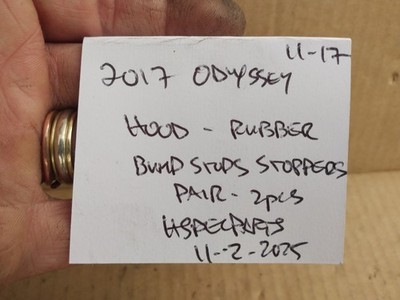 11-17
2017 ODYSSEY
HOOD - RUBBER
BUMP STOPS STOPPERS
PAIR - 2pcs
HSPECPARTS
11-2-2025